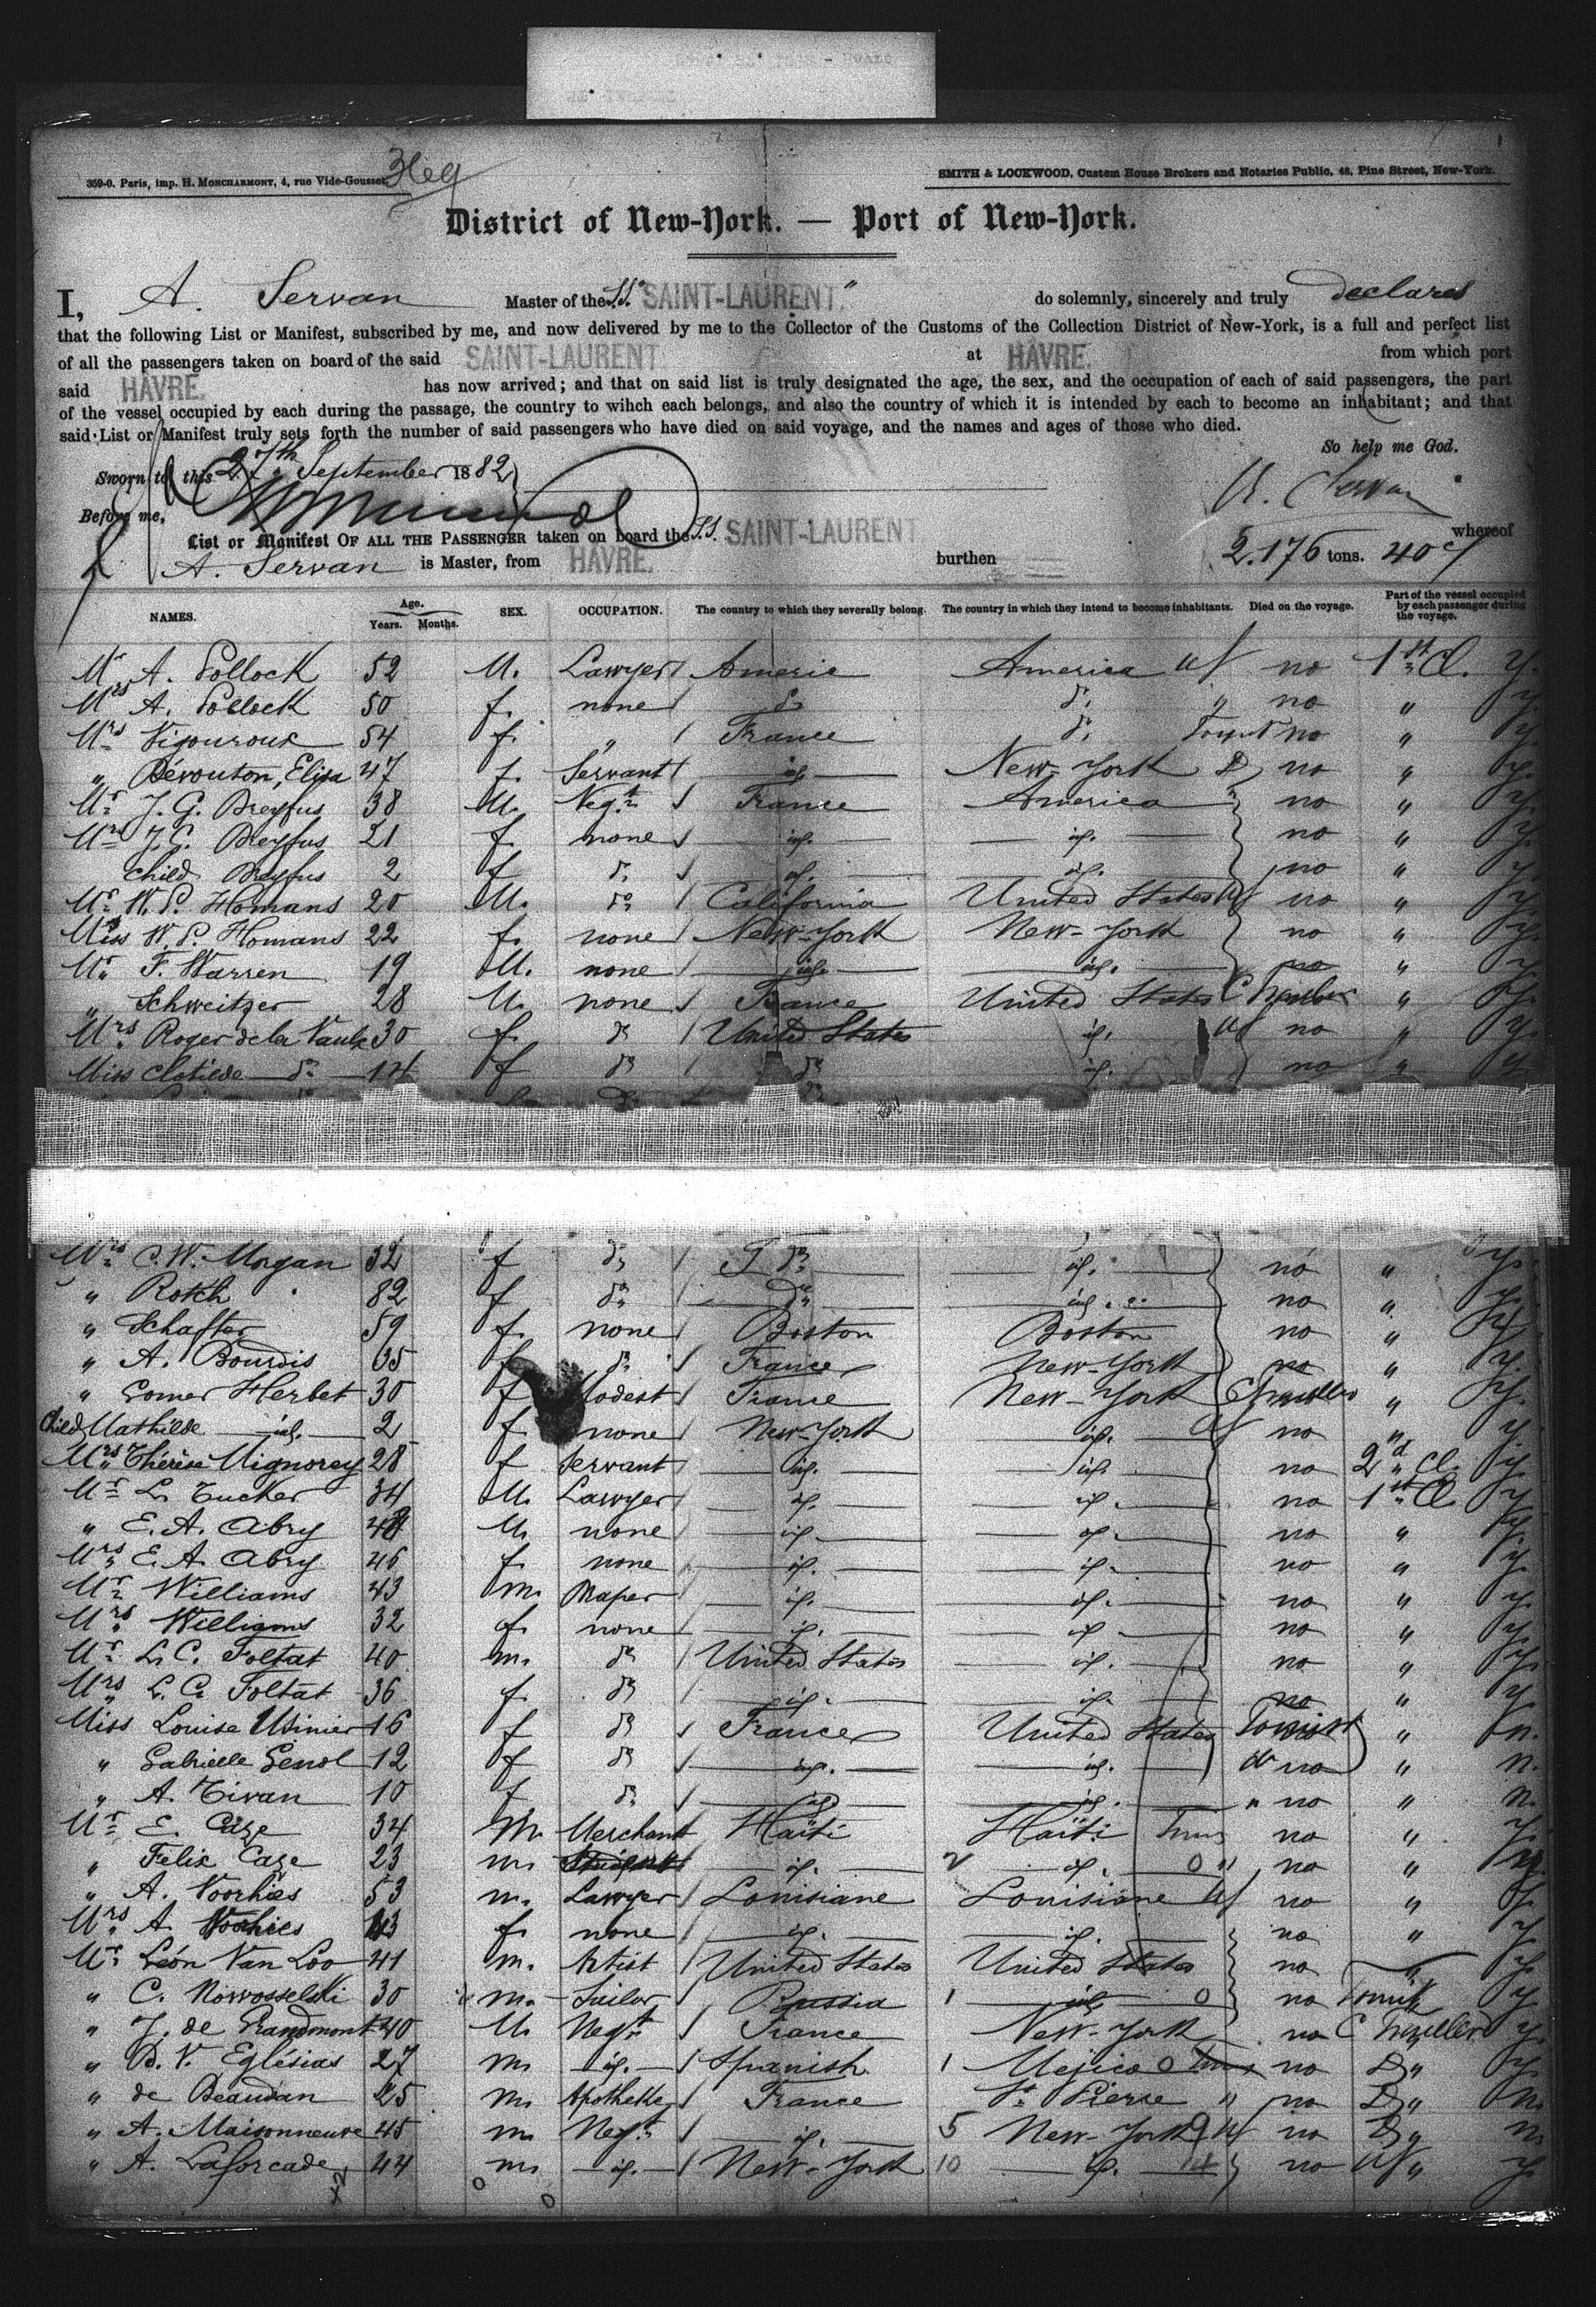 359-0. Paris, imp. H. MONCHARMONT, 4, rue Vide-Gousset.
SMITH & LOCKWOOD, Custom House Brokers and Notaries Public, 48, Pine Street, New-York.
District of New-York. — Port of New-York.
I, A. Servan Master of the S.S. "SAINT-LAURENT." do solemnly, sincerely and truly declares
that the following List or Manifest, subscribed by me, and now delivered by me to the Collector of the Customs of the Collection District of New-York, is a full and perfect list
of all the passengers taken on board of the said SAINT-LAURENT at HAVRE. from which port
said HAVRE. has now arrived; and that on said list is truly designated the age, the sex, and the occupation of each of said passengers, the part
of the vessel occupied by each during the passage, the country to wihch each belongs, and also the country of which it is intended by each to become an inhabitant; and that
said List or Manifest truly sets forth the number of said passengers who have died on said voyage, and the names and ages of those who died.
So help me God.
Sworn to this 27th September 1882
A. Servan
Before me,
List or Manifest OF ALL THE PASSENGER taken on board the S.S. SAINT-LAURENT whereof
A. Servan is Master, from HAVRE. burthen 2.176 tons. 40
NAMES. Age. Years. Months. SEX. OCCUPATION. The country to which they severally belong. The country in which they intend to become inhabitants. Died on the voyage. Part of the vessel occupied by each passenger during the voyage.
Mr A. Pollock 52 M. Lawyer Americ America no 1st Cl. y.
Mrs A. Pollock 50 f. none do do no " y.
Mrs Vigouroux 54 f. " France do Tourist no " y.
" Bérouton, Elisa 47 f. Servant id. New-York no " y.
Mr J. G. Dreyfus 38 M. Negt France America no " y.
Mrs J. G. Dreyfus 21 f. none id. id. no " y.
Child Dreyfus 2 f do id. id. no " y.
Mr W. P. Homans 20 M. do California United States no " y.
Miss W. P. Homans 22 f. none New-York New-York no " y.
Mr F. Warren 19 M. none id. id. no " y.
" Schweitzer 28 M. none France United States " y.
Mrs Roger de la 30 f. do United States id. no " y.
Miss Clotilde do 14 f do do id. no " y
Mrs C. W. Morgan 32 f do do id. no " y.
" Rotch 82 f do do id. no " y.
" Schafter 59 f. none Boston Boston no " y.
" A. Bourdis 35 f do France New-York no " y.
" Gomer Herbet 30 f Modest France New-York C Traveller " y.
Child Mathilde id. 2 f. none New-York id. no " y.
Mrs Thérèse Mignorey 28 f Servant id. id. no 2d Cl. y.
Mr L. Tucker 34 M. Lawyer id. id. no 1st Cl y
" E. A. Abry 48 M. none id. id. no " y.
Mrs E. A. Abry 46 f. none id. id. no " y.
Mr Williams 43 m. id. id. no " y.
Mrs Williams 32 f. none id. id. no " y.
Mr L. C. Foltat 40 m. do United States id. no " y.
Mrs L. C. Foltat 36 f. do id. id. no " y.
Miss Louise Usinier 16 f do France United States Tourist " n.
" Gabrielle 12 f do id. id. no " n.
" A. Tivan 10 f do id. id. " no " n.
Mr E. Caze 34 M. Merchant Haïti Haïti no " y.
" Felix Caze 23 m. id. id. no "
" A. Voorhies 53 m. Lawyer Louisiane Louisiane no " y.
Mrs A. Voorhies f. none id. id. no " y.
Mr Léon Van Loo 41 m. Artist United States United States no " y.
" C. Nowosselski 30 m. Sailor Russia id. no y
" J. de Grandmont 40 M. Negt France New-York no C Traveller y.
" B. V. Eglésias 27 m. id. Spanish Mejico no " y.
" de Beaudan 25 m. Apotheke France St Pierre " no " n.
" A. Maisonneuve 45 m. Negt id. 5 New-York no " n.
" A. Laforcade 44 m. id. New-York 10 id. no " y.